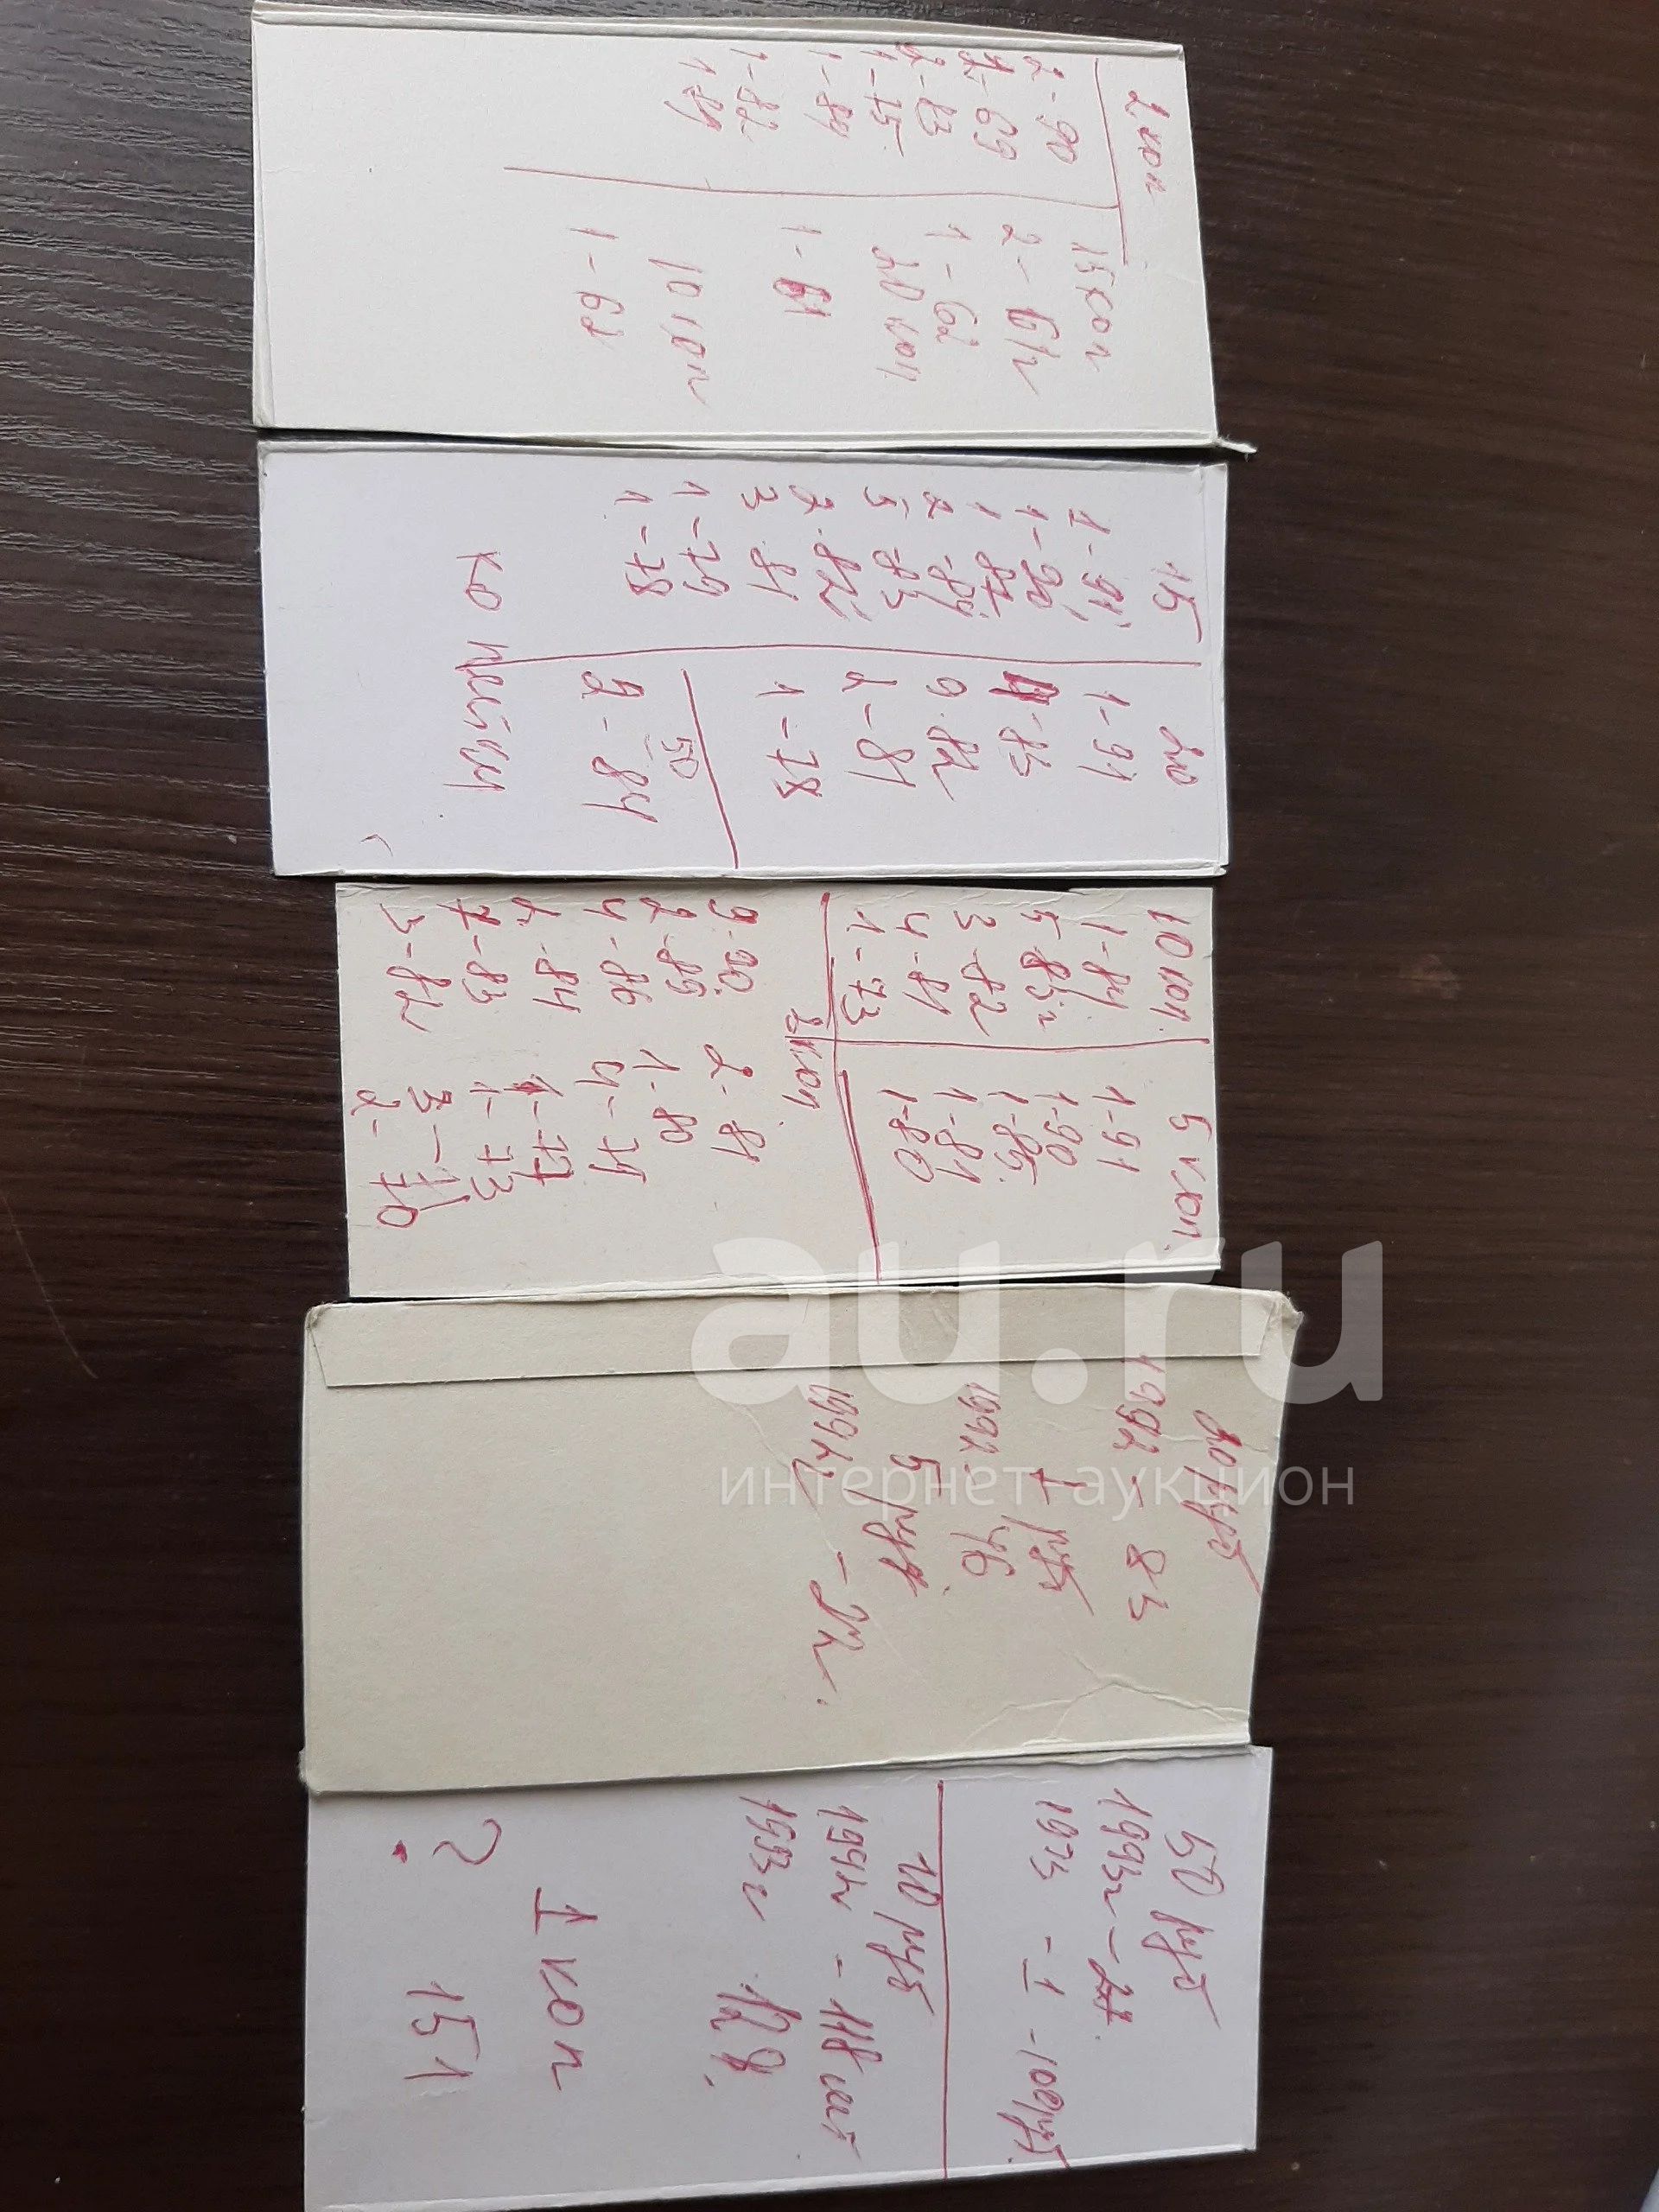 2 коп
2 - 90
2 - 69
2 - 83
1 - 75
1 - 84
1 - 82
1 89
15 коп
2 - 61г
1 - 62
20 коп
1 - 61
10 коп
1 - 68
15
1 - 91
1 - 90
1 87
2 - 84
5 - 83
2 - 82
3 81
1 - 79
1 - 78
20
1 - 91
4 - 83
9 - 82
2 - 81
1 - 78
50
2 - 84
копейки
10 коп.
1 - 84
5 - 83г
3 - 82
4 - 81
1 - 73
5 коп.
1 - 91
1 - 90
1 - 85
1 - 81
1 - 80
3 коп
9 - 90
2 - 89
4 - 86
2 - 84
7 - 83
3 - 82
2 - 81
1 - 80
4 - 79
1 - 77
1 - 73
3 - 71
2 - 70
20 руб
1992 - 83
1 руб
1992 - 46
5 руб
1992г - 2г.
50 руб
1993г - 27
1993 - 1 - 100 руб
10 руб
1992г - 118 шт
1993г 128
1 коп
? 151
au.ru
интернет аукцион